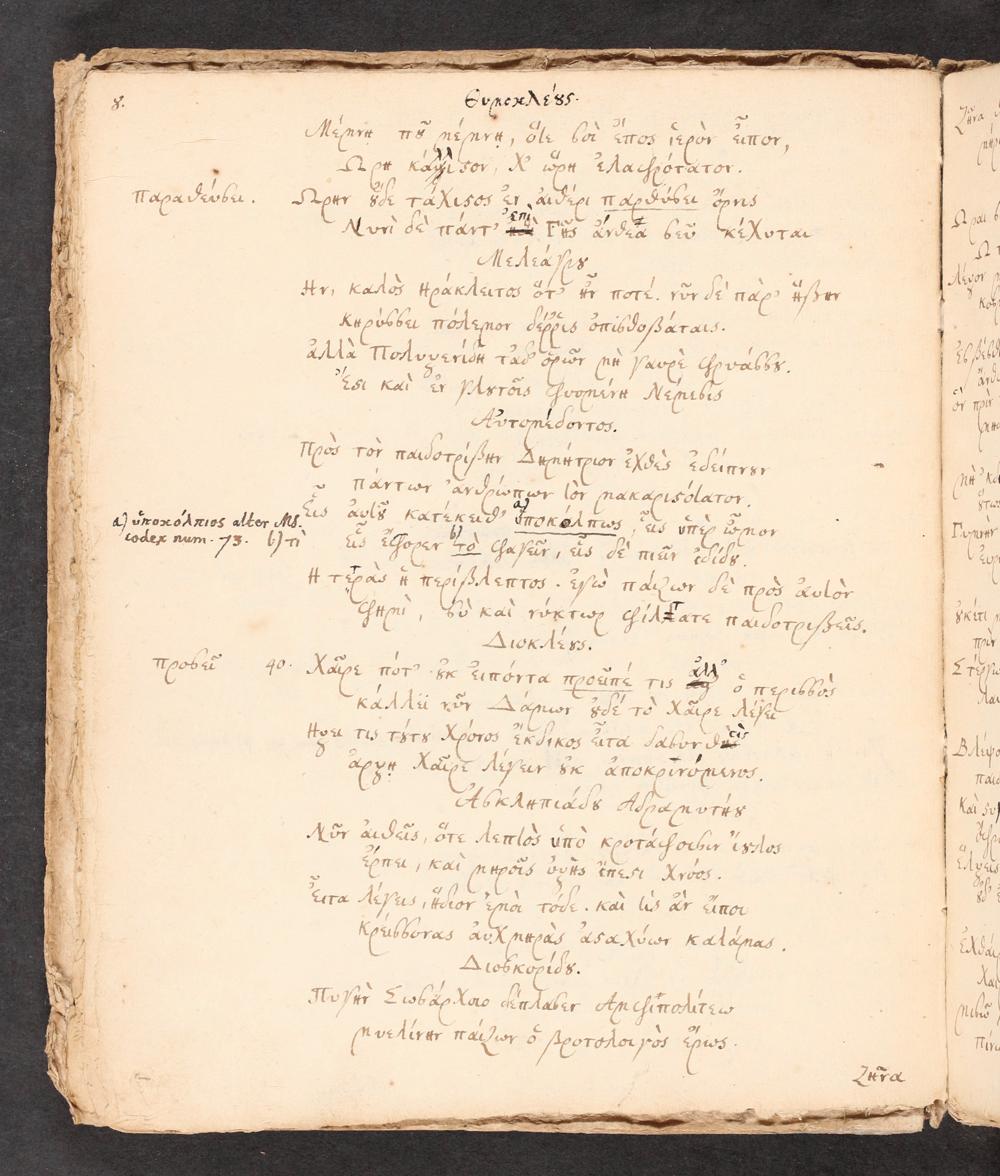 8.
Θυμοκλέȣς.
Μέμνῃ πȣ͂ μέμνῃ, ὅτε σοι ἔπος ἱερὸν εἶπον,
Ὥρη κάλλιστον, χ' ὥρη ἐλαφρότατον.
παραθεύσει. Ὥρην ȣ̓δὲ τάχιστος ἐν αἰθέρι παρθύσει ὄρνις
Νυνὶ δὲ πάντ' ἐπὶ Γῆς ἄνθεα σεῦ κέχυται
Μελεάγρȣ
Ην, καλὸς Ηράκλειτος ὅτ' ἦν ποτέ. νῦν δὲ πὰρ' ἥβην
κηρύσσει πόλεμον δέρρις ὀπισθοβάταις.
ἀλλὰ Πολυξενίδη τάδ' ὁρῶν μὴ γαῦρε φρυάσσȣ.
Ἔστι καὶ ἐν γλȣτοῖς φυομένη Νέμεσις
Αὐτομέδοντος.
Πρὸς τὸν παιδοτρίβην Δημήτριον ἐχθὲς ἐδείπνȣν
πάντων ἀνθρώπων τὸν μακαριστότατον.
Εἷς αὐτȣ͂ κατέκειθ' a) ὑποκόλπιος, εἷς ὑπὲρ ὦμον
a) ὑποκόλπιος alter Ms.
codex num. 73. b) τὶ
εἷς ἔφορεν b) τὸ φαγεῖν, εἷς δὲ πιεῖν ἐδίδȣ.
Η τετρὰς ἡ περίβλεπτος. ἐγὼ παίζων δὲ πρὸς αὐτὸν
φημὶ, σὺ καὶ νύκτωρ φίλτατε παιδοτριβεῖς.
Διοκλέȣς.
προσεῖ 40. Χαῖρε πότ' ȣ̓κ εἰπόντα προεῖπέ τις ἀλλ' ὁ περισσὸς
κάλλεϊ νῦν Δάμων ȣ̓δὲ τὸ χαῖρε λέγει
Ηξει τις τȣ́τȣ χρόνος ἔκδικος εἶτα δασυνθεὶς
ἄρξῃ χαῖρε λέγειν ȣ̓κ ἀποκρινόμενος.
Ἀσκληπιάδȣ Αδραμυτήȣ
Νῦν αἰτεῖς, ὅτε λεπτὸς ὑπὸ κροτάφοισιν ἴȣλος
ἕρπει, καὶ μηροῖς ὀξὺς ἔπεστι χνόος.
Εἶτα λέγεις, ἥδιον ἐμοὶ τόδε. καὶ τίς ἂν εἴποι
κρείσσονας αὐχμηρὰς ἀσταχύων καλάμας.
Διοσκορίδȣ.
Πυγὴν Σωσάρχοιο διέπλασεν Αμφιπολίτεω
μυελίνην παίζων ὁ βροτολοιγὸς Ἔρως.
Ζῆνα